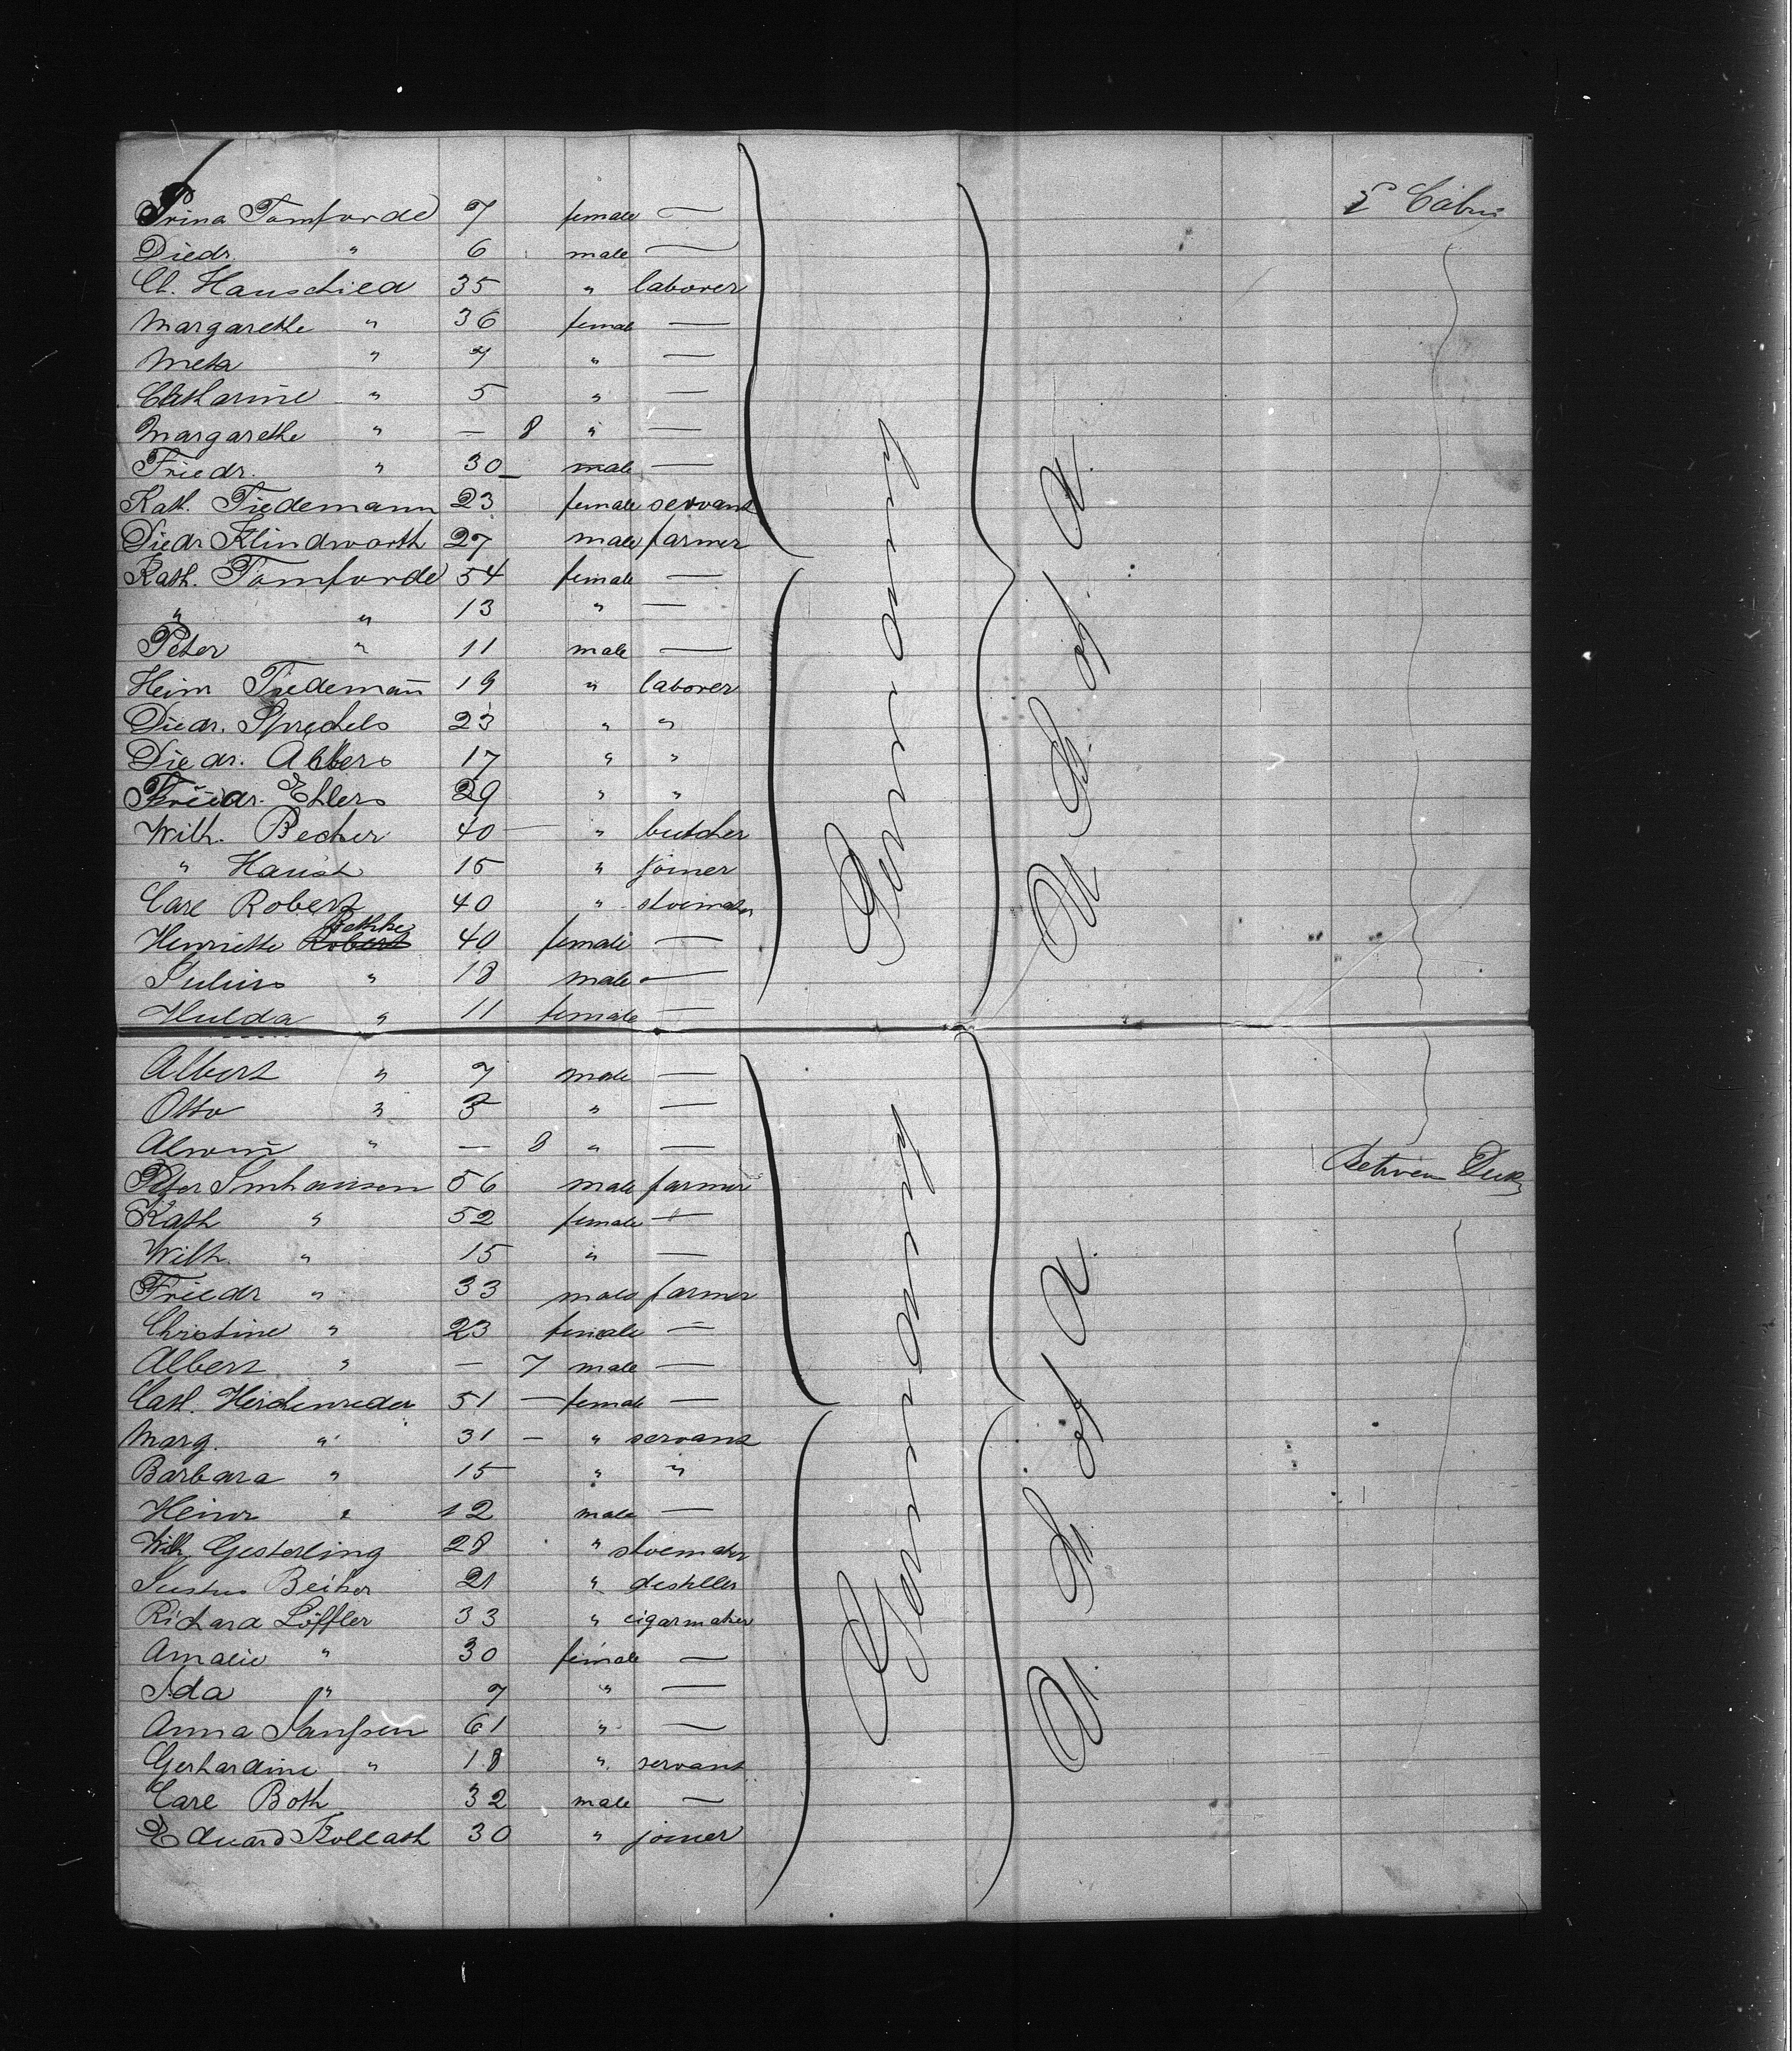 Prina Tomforde 7 female — 2 Cabin
Diedr. " 6 male —
Cl. Hauschied 35 " laborer
Margarethe " 36 female —
Meta " 7 " —
Catharine " 5 " —
Margarethe " — 8 " —
Friedr. " 30 male —
Kath. Tiedemann 23 female servant
Diedr Klindworth 27 male farmer
Kath. Tomforde 54 female —
" " 13 " —
Peter " 11 male —
Heinr Tiedemañ 19 " laborer
Diedr. Spreckels 23 " "
Diedr. Ahlers 17 " "
Friedr. Ehlers 29 " "
Wilh. Becker 40 — " butcher
" Haush 15 " joiner
Carl Robert 40 " shoemaker
Henriette Robert Bethke 40 female —
Julius " 18 male —
Hulda " 11 female —
Germany
U. S. of A.
Albert " 7 male —
Otto " 3 " —
Alwin " — 8 " —
Peter Imhausen 56 male farmer Between Deck
Kath " 52 female —
Wilh. " 15 " —
Friedr " 33 male farmer
Christine " 23 female —
Albert " — 7 male —
Cath. Heidenreder 51 — female —
Marg. " 31 — " servant
Barbara " 15 " "
Heinr " 12 male —
Wilh Gesterling 28 " shoemaker
Justus Beiker 21 " destiller
Richard Löffler 33 " cigarmaker
Amalie " 30 female —
Ida " 7 " —
Anna Janssen 61 " —
Gerhardine " 18 " servant
Carl Both 32 male —
Eduard Kollath 30 " joiner
Germany
U. S. of A.